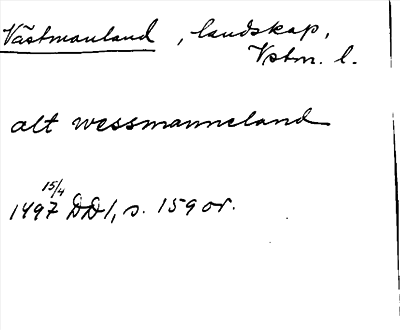 Västmanland, landskap,
Vstm. l.
alt wessmanneland
15/4
1497 DD1, s. 159 or.